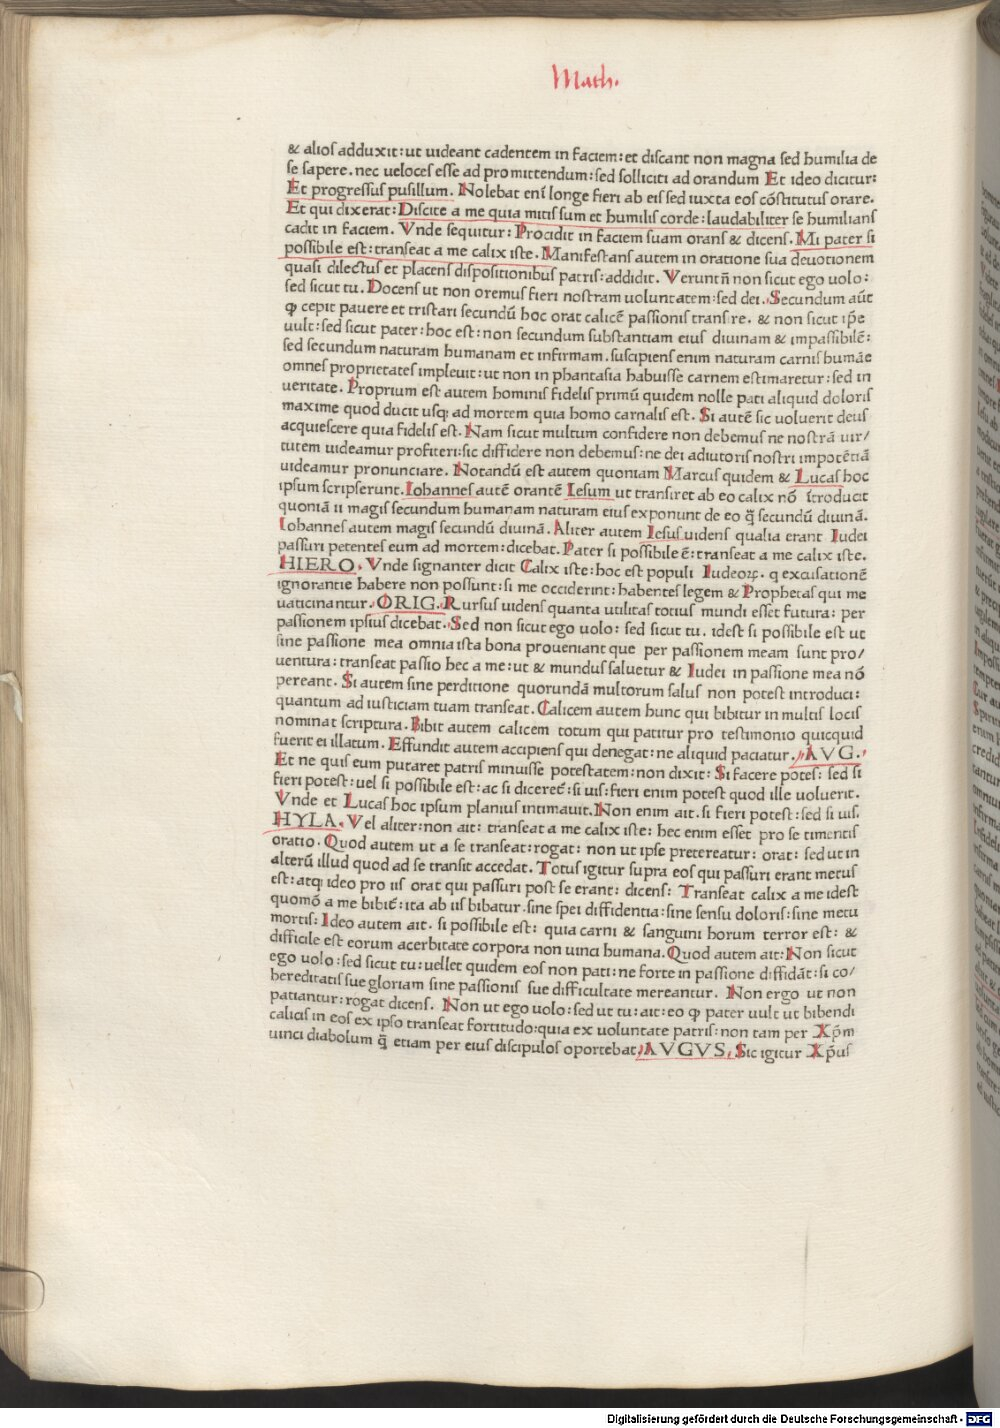 Math.
& alios adduxit: ut uideant cadentem in faciem: et discant non magna sed humilia de
se sapere. nec ueloces esse ad promittendum: sed solliciti ad orandum Et ideo dicitur:
Et progressus pusillum. Nolebat eni͂ longe fieri ab eis sed iuxta eos cōstitutus orare.
Et qui dixerat: Discite a me quia mitis sum et humilis corde: laudabiliter se humilians
cadit in faciem. Vnde sequitur: Procidit in faciem suam orans & dicens. Mi pater si
possibile est: transeat a me calix iste. Manifestans autem in oratione sua deuotionem
quasi dilectus et placens dispositionibus patris: addidit. Veruntn̄ non sicut ego uolo:
sed sicut tu. Docens ut non oremus fieri nostram uoluntatem: sed dei. Secundum aūt
ꝙ cepit pauere et tristari secundū hoc orat calicē passionis transire. & non sicut ip̄e
uult: sed sicut pater: hoc est: non secundum substantiam eius diuinam & impassibilē:
sed secundum naturam humanam et infirmam. suscipiens enim naturam carnis humāe
omnes proprietates impleuit: ut non in phantasia habuisse carnem estimaretur: sed in
ueritate. Proprium est autem hominis fidelis primū quidem nolle pati aliquid doloris
maxime quod ducit usq; ad mortem quia homo carnalis est. Si autē sic uoluerit deus
acquiescere quia fidelis est. Nam sicut multum confidere non debemus ne nostrā uir/
tutem uideamur profiteri: sic diffidere non debemus: ne dei adiutoris nostri impotētiā
uideamur pronunciare. Notandū est autem quoniam Marcus quidem & Lucas hoc
ipsum scripserunt. Iohannes autē orantē Iesum ut transiret ab eo calix nō ītroducit
quoniā ii magis secundum humanam naturam eius exponunt de eo q̄̄ secundū diuinā.
Iohannes autem magis secundū diuinā. Aliter autem Iesus uidens qualia erant Iudei
passuri petentes eum ad mortem: dicebat. Pater si possibile ē: transeat a me calix iste.
HIERO. Vnde signanter dicit Calix iste: hoc est populi Iudeoꝝ. q excusationē
ignorantie habere non possunt: si me occiderint: habentes legem & Prophetas qui me
uaticinantur. ORIG. Rursus uidens quanta utilitas totius mundi esset futura: per
passionem ipsius dicebat. Sed non sicut ego uolo: sed sicut tu. idest si possibile est ut
sine passione mea omnia ista bona proueniant que per passionem meam sunt pro/
uentura: transeat passio hec a me: ut & mundus saluetur & Iudei in passione mea nō
pereant. Si autem sine perditione quorundā multorum salus non potest introduci:
quantum ad iusticiam tuam transeat. Calicem autem hunc qui bibitur in multis locis
nominat scriptura. Bibit autem calicem totum qui patitur pro testimonio quicquid
fuerit ei illatum. Effundit autem accipiens qui denegat: ne aliquid paciatur. AVG.
Et ne quis eum putaret patris minuisse potestatem: non dixit: Si facere potes: sed si
fieri potest: uel si possibile est: ac si diceret͂: si uis: fieri enim potest quod ille uoluerit.
Vnde et Lucas hoc ipsum planius intimauit. Non enim ait. si fieri potest: sed si uis.
HYLA. Vel aliter: non ait: transeat a me calix iste: hec enim esset pro se timentis
oratio. Quod autem ut a se transeat: rogat: non ut ipse pretereatur: orat: sed ut in
alterū illud quod ad se transit accedat. Totus igitur supra eos qui passuri erant metus
est: atq; ideo pro iis orat qui passuri post se erant: dicens: Transeat calix a me idest
quomō a me bibit͂: ita ab iis bibatur. sine spei diffidentia: sine sensu doloris: sine metu
mortis: Ideo autem ait. si possibile est: quia carni & sanguini horum terror est: &
difficile est eorum acerbitate corpora non uinci humana. Quod autem ait: Non sicut
ego uolo: sed sicut tu: uellet quidem eos non pati: ne forte in passione diffidāt: si co/
hereditatis sue gloriam sine passionis sue difficultate mereantur. Non ergo ut non
patiantur: rogat dicens. Non ut ego uolo: sed ut tu: ait: eo ꝙ pater uult ut bibendi
calicis in eos ex ipso transeat fortitudo: quia ex uoluntate patris: non tam per Xp̄m
uinci diabolum q̄̄ etiam per eius discipulos oportebat. AVGVS. Sic igitur Xp̄us
Digitalisierung gefördert durch die Deutsche Forschungsgemeinschaft - DFG